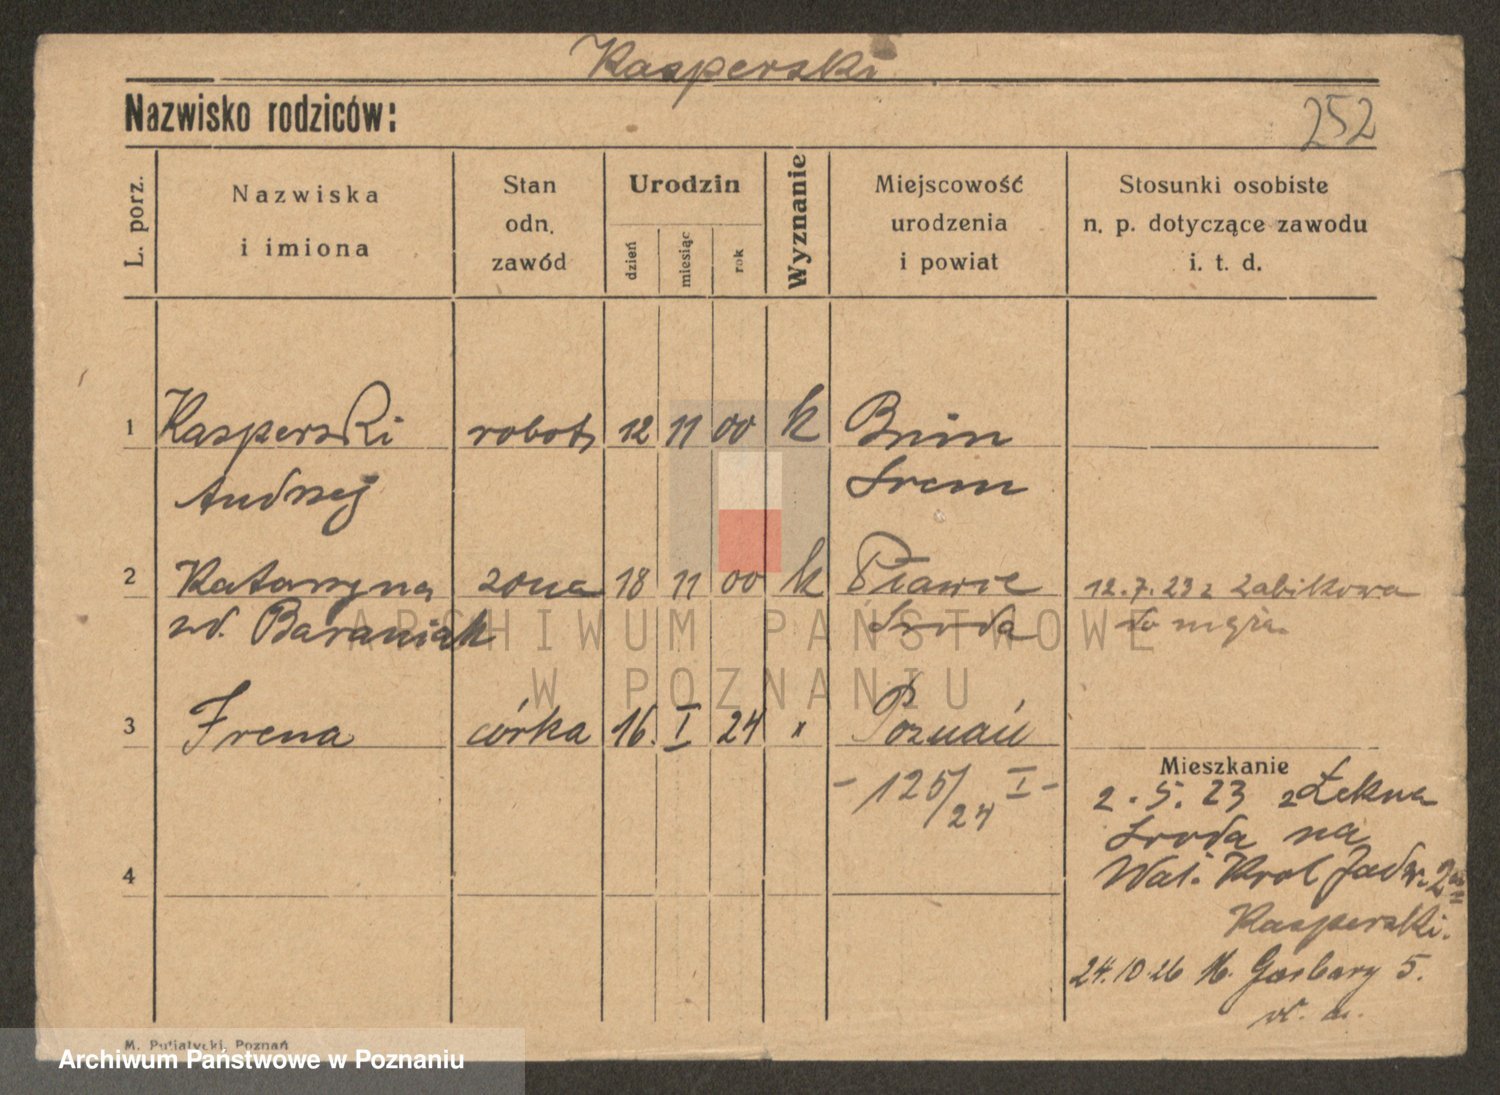 Kasperski
Nazwisko rodziców:
252
L. porz.
Nazwiska
i imiona
Stan
odn.
zawód
Urodzin
dzień
miesiąc
rok
Wyznanie
Miejscowość
urodzenia
i powiat
Stosunki osobiste
n. p. dotyczące zawodu
i. t. d.
1 Kasperski robotn 12 11 00 k Bnin
Andrzej Śrem
2 Katarzyna żona 18 11 00 k
zd. Baraniak Środa
12.7.23 z Żabikowa
do męża
3 Irena córka 16. I 24 " Poznań
- 125/24 I -
Mieszkanie
2.5.23 z Łekna
Środa na
Wał. Krol Jadw. 2
Kasperski.
4
24.10.26 Garbary 5.
ARCHIWUM PAŃSTWOWE
W POZNANIU
M. Putiatycki, Poznań
Archiwum Państwowe w Poznaniu